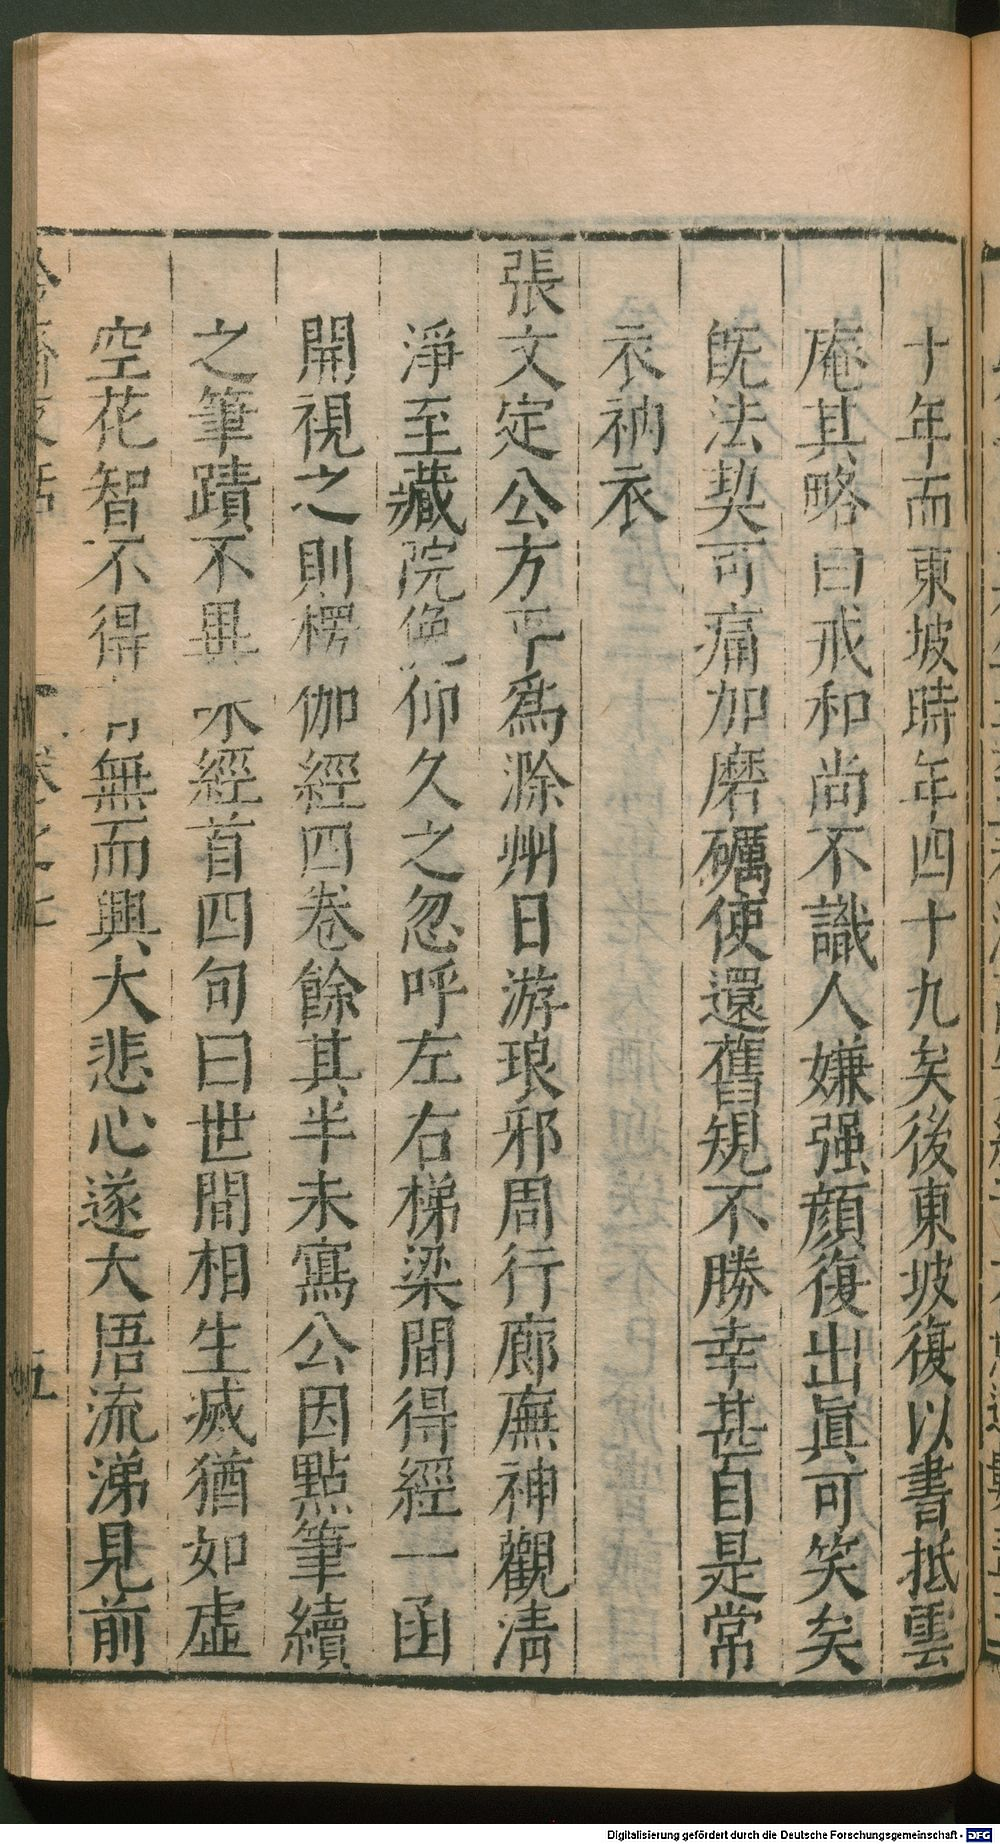 十年而東坡時年四十九矣後東坡復以書抵雲
庵其略曰戒和尚不識人嫌强顔復出眞可笑矣
旣法契可痛加磨礪使還舊規不勝幸甚自是常
衣衲衣
張文定公方平爲滁州日游琅邪周行廊廡神觀清
淨至藏院俛仰久之忽呼左右梯梁間得經一函
開視之則楞伽經四卷餘其半未寫公因點筆續
之筆蹟不異 經首四句曰世間相生滅猶如虛
空花智不得有無而興大悲心遂大悟流涕見前
冷齋夜話 卷之七 五
Digitalisierung gefördert durch die Deutsche Forschungsgemeinschaft - DFG